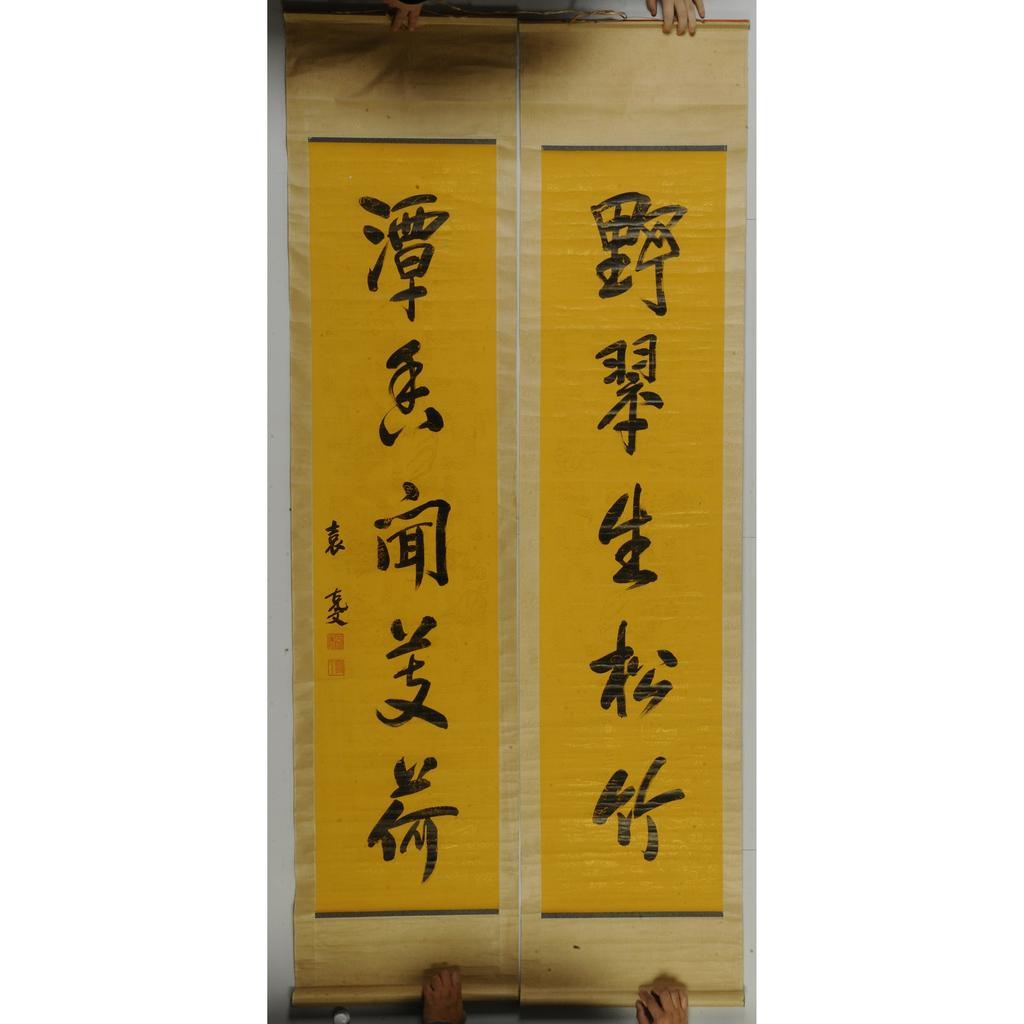 野翠生松竹
潭香聞芰荷
袁克文